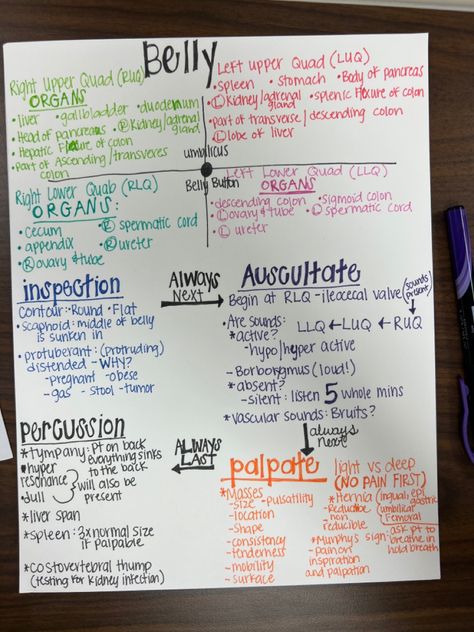 Belly
Right Upper Quad (RUQ)
ORGANS
• liver • gallbladder • duodenum
• Head of pancreas • Ⓡ Kidney/adrenal gland
• Hepatic Flexure of colon
• Part of Ascending/transveres colon
Left Upper Quad (LUQ)
• spleen • stomach • Body of pancreas
• Ⓛ Kidney/adrenal gland • splenic Flexure of colon
• part of transverse/descending colon
• Ⓛ lobe of liver
umbilicus
Belly Button
Right Lower Quab (RLQ)
ORGANS:
• cecum • Ⓡ spermatic cord
• appendix • Ⓡ ureter
• Ⓡ ovary & tube
Left Lower Quad (LLQ)
ORGANS
• descending colon • sigmoid colon
• Ⓛ ovary & tube • Ⓛ spermatic cord
• Ⓛ ureter
inspection
Contour: • Round • Flat
• scaphoid: middle of belly
is sunken in
• protuberant: (protruding)
distended - WHY?
- pregnant - obese
- gas - stool - tumor
ALWAYS
Next
Auscultate
Begin at RLQ - ileocecal valve (sounds present)
• Are sounds: LLQ ← LUQ ← RUQ
* active?
- hypo/hyper active
- Borborygmus (loud!)
* absent?
- silent: listen 5 whole mins
* vascular sounds: Bruits?
always
next
palpate light vs deep
(NO PAIN FIRST)
* Masses
- size - pulsatility
- location
- shape
- consistency
- tenderness
- mobility
- surface
* Hernia (ingual, epigastric
- Reducible umbilical
- non reducible Femoral
* Murphy's sign: ask pt to breathe in hold breath
- pain on
inspiration
and palpation
ALWAYS
LAST
Percussion
* tympany: Pt on back
everything sinks
to the back
* hyper
resonance
* dull
will also be
present
* liver span
* spleen: 3x normal size
if palpable
* costovertebral thump
(testing for kidney infection)